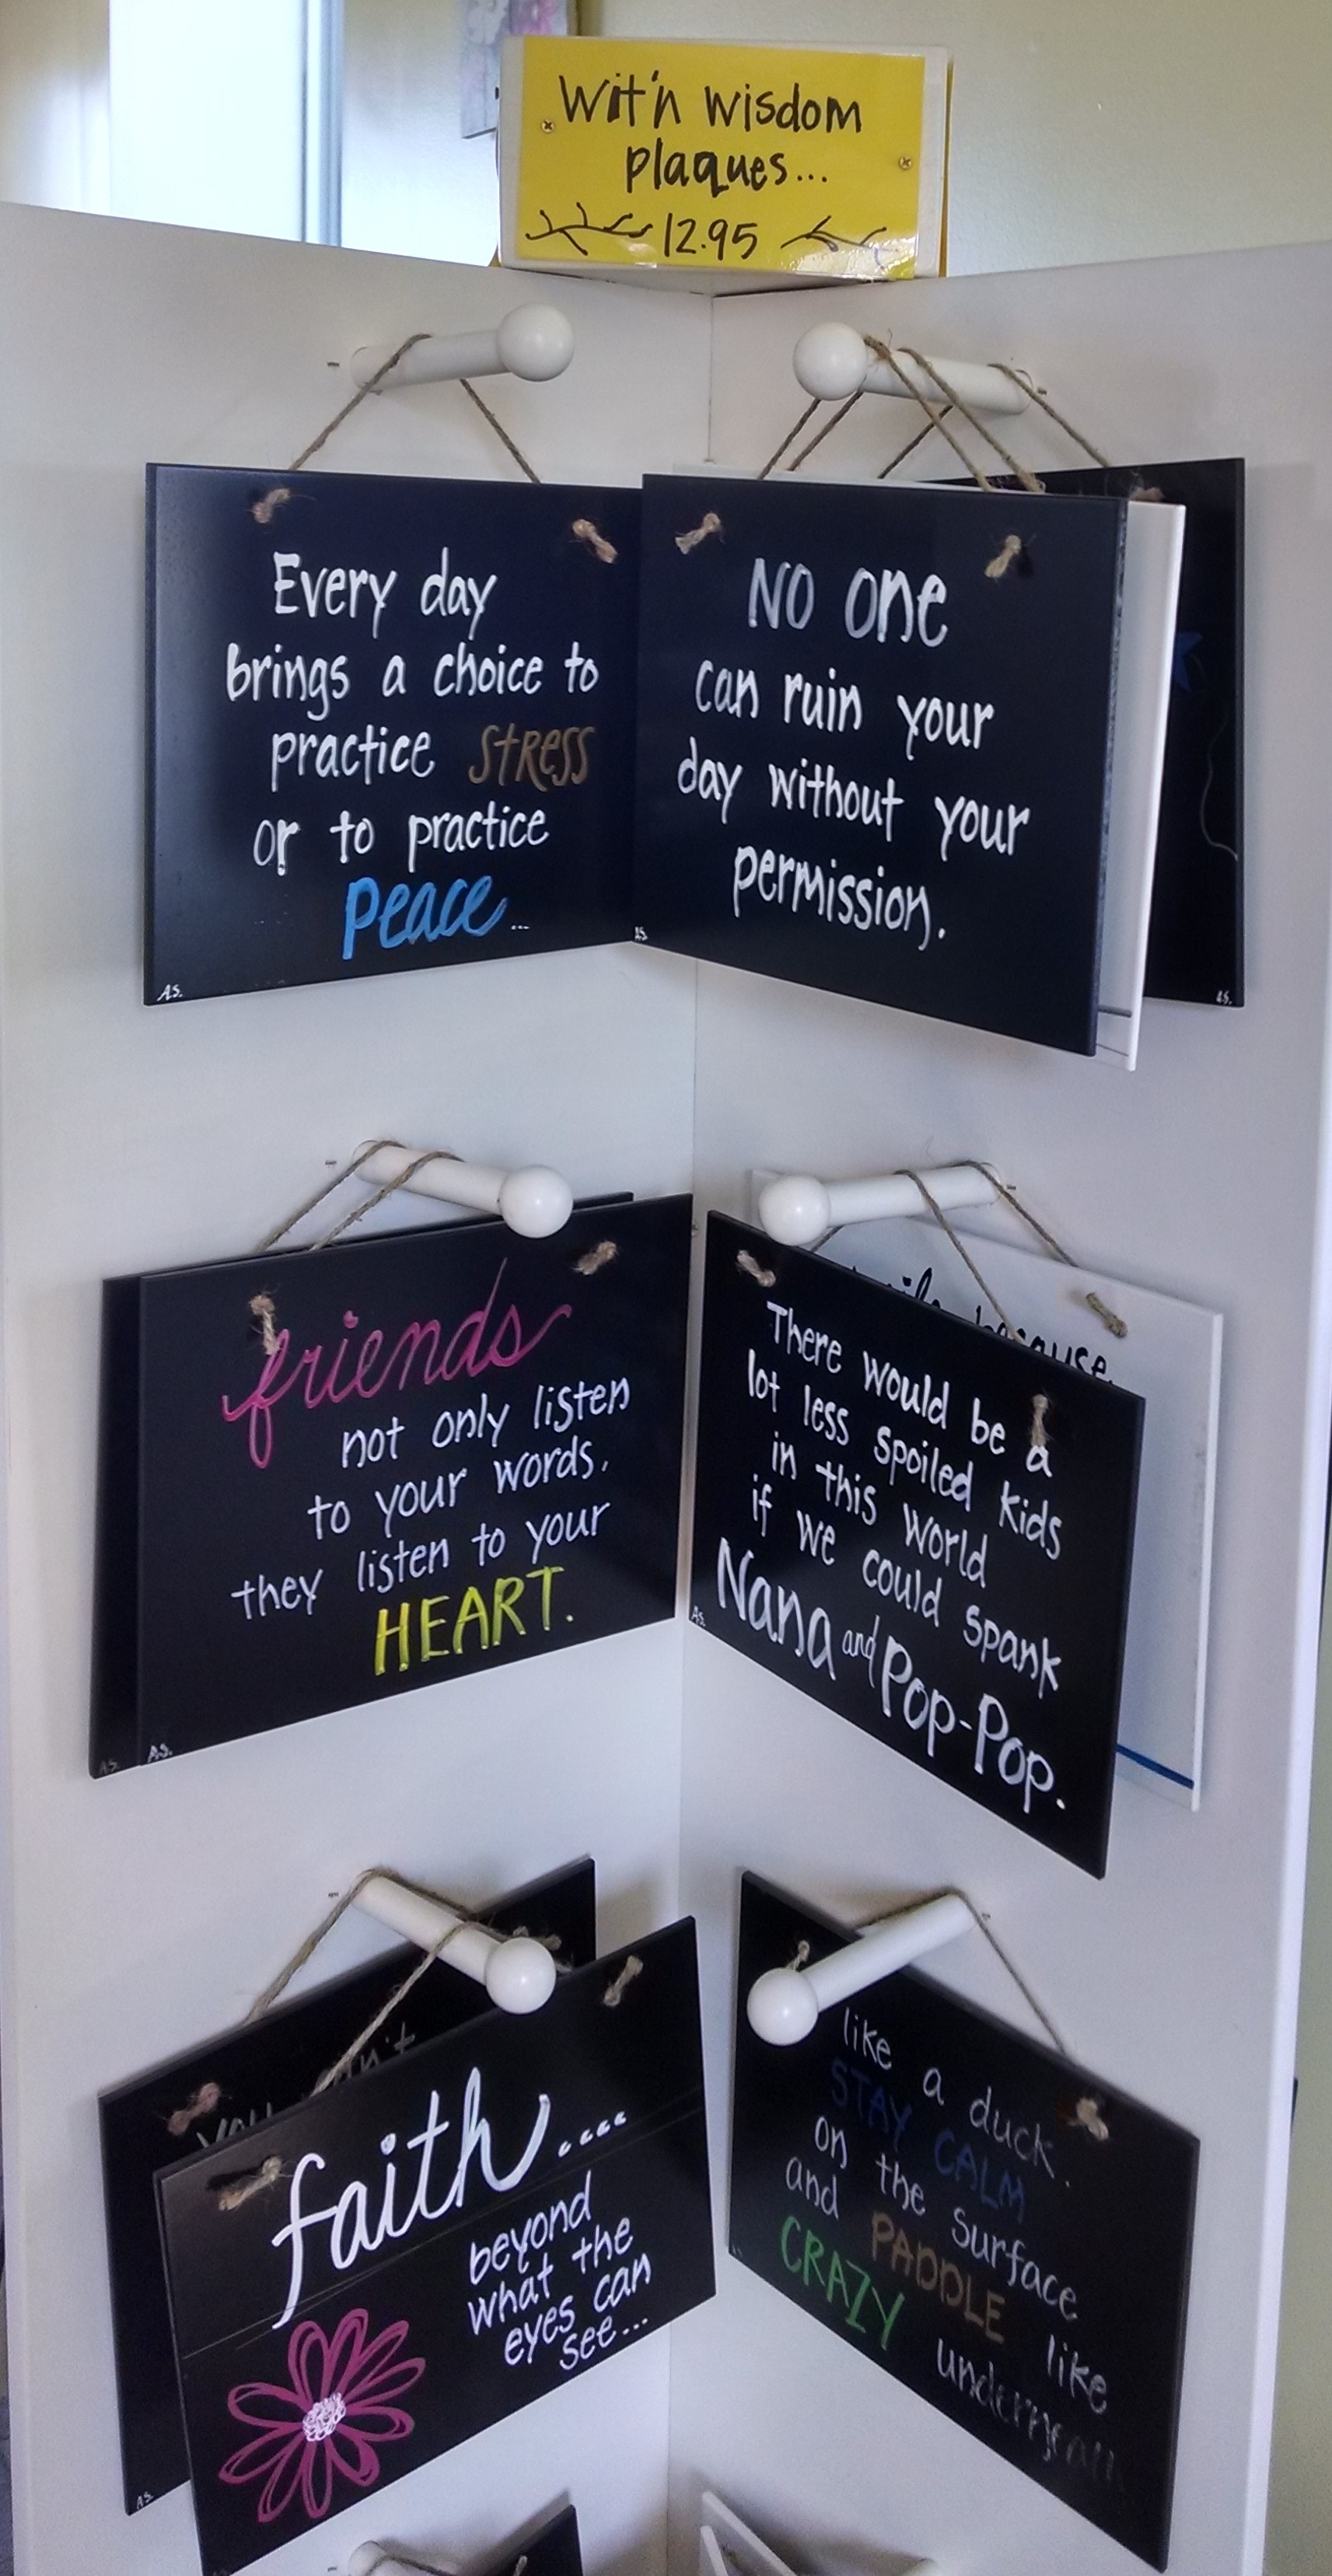 Wit'n wisdom
plaques...
12.95
Every day
brings a choice to
practice stress
or to practice
peace...
A.S.
No one
can ruin your
day without your
permission.
A.S.
A.S.
friends
not only listen
to your words,
they listen to your
HEART.
A.S.
A.S.
because
There would be a
lot less spoiled kids
in this world
if we could spank
Nana and Pop-Pop.
A.S.
faith....
beyond
what the
eyes can
see...
A.S.
like a duck.
STAY CALM
on the surface
and PADDLE like
CRAZY